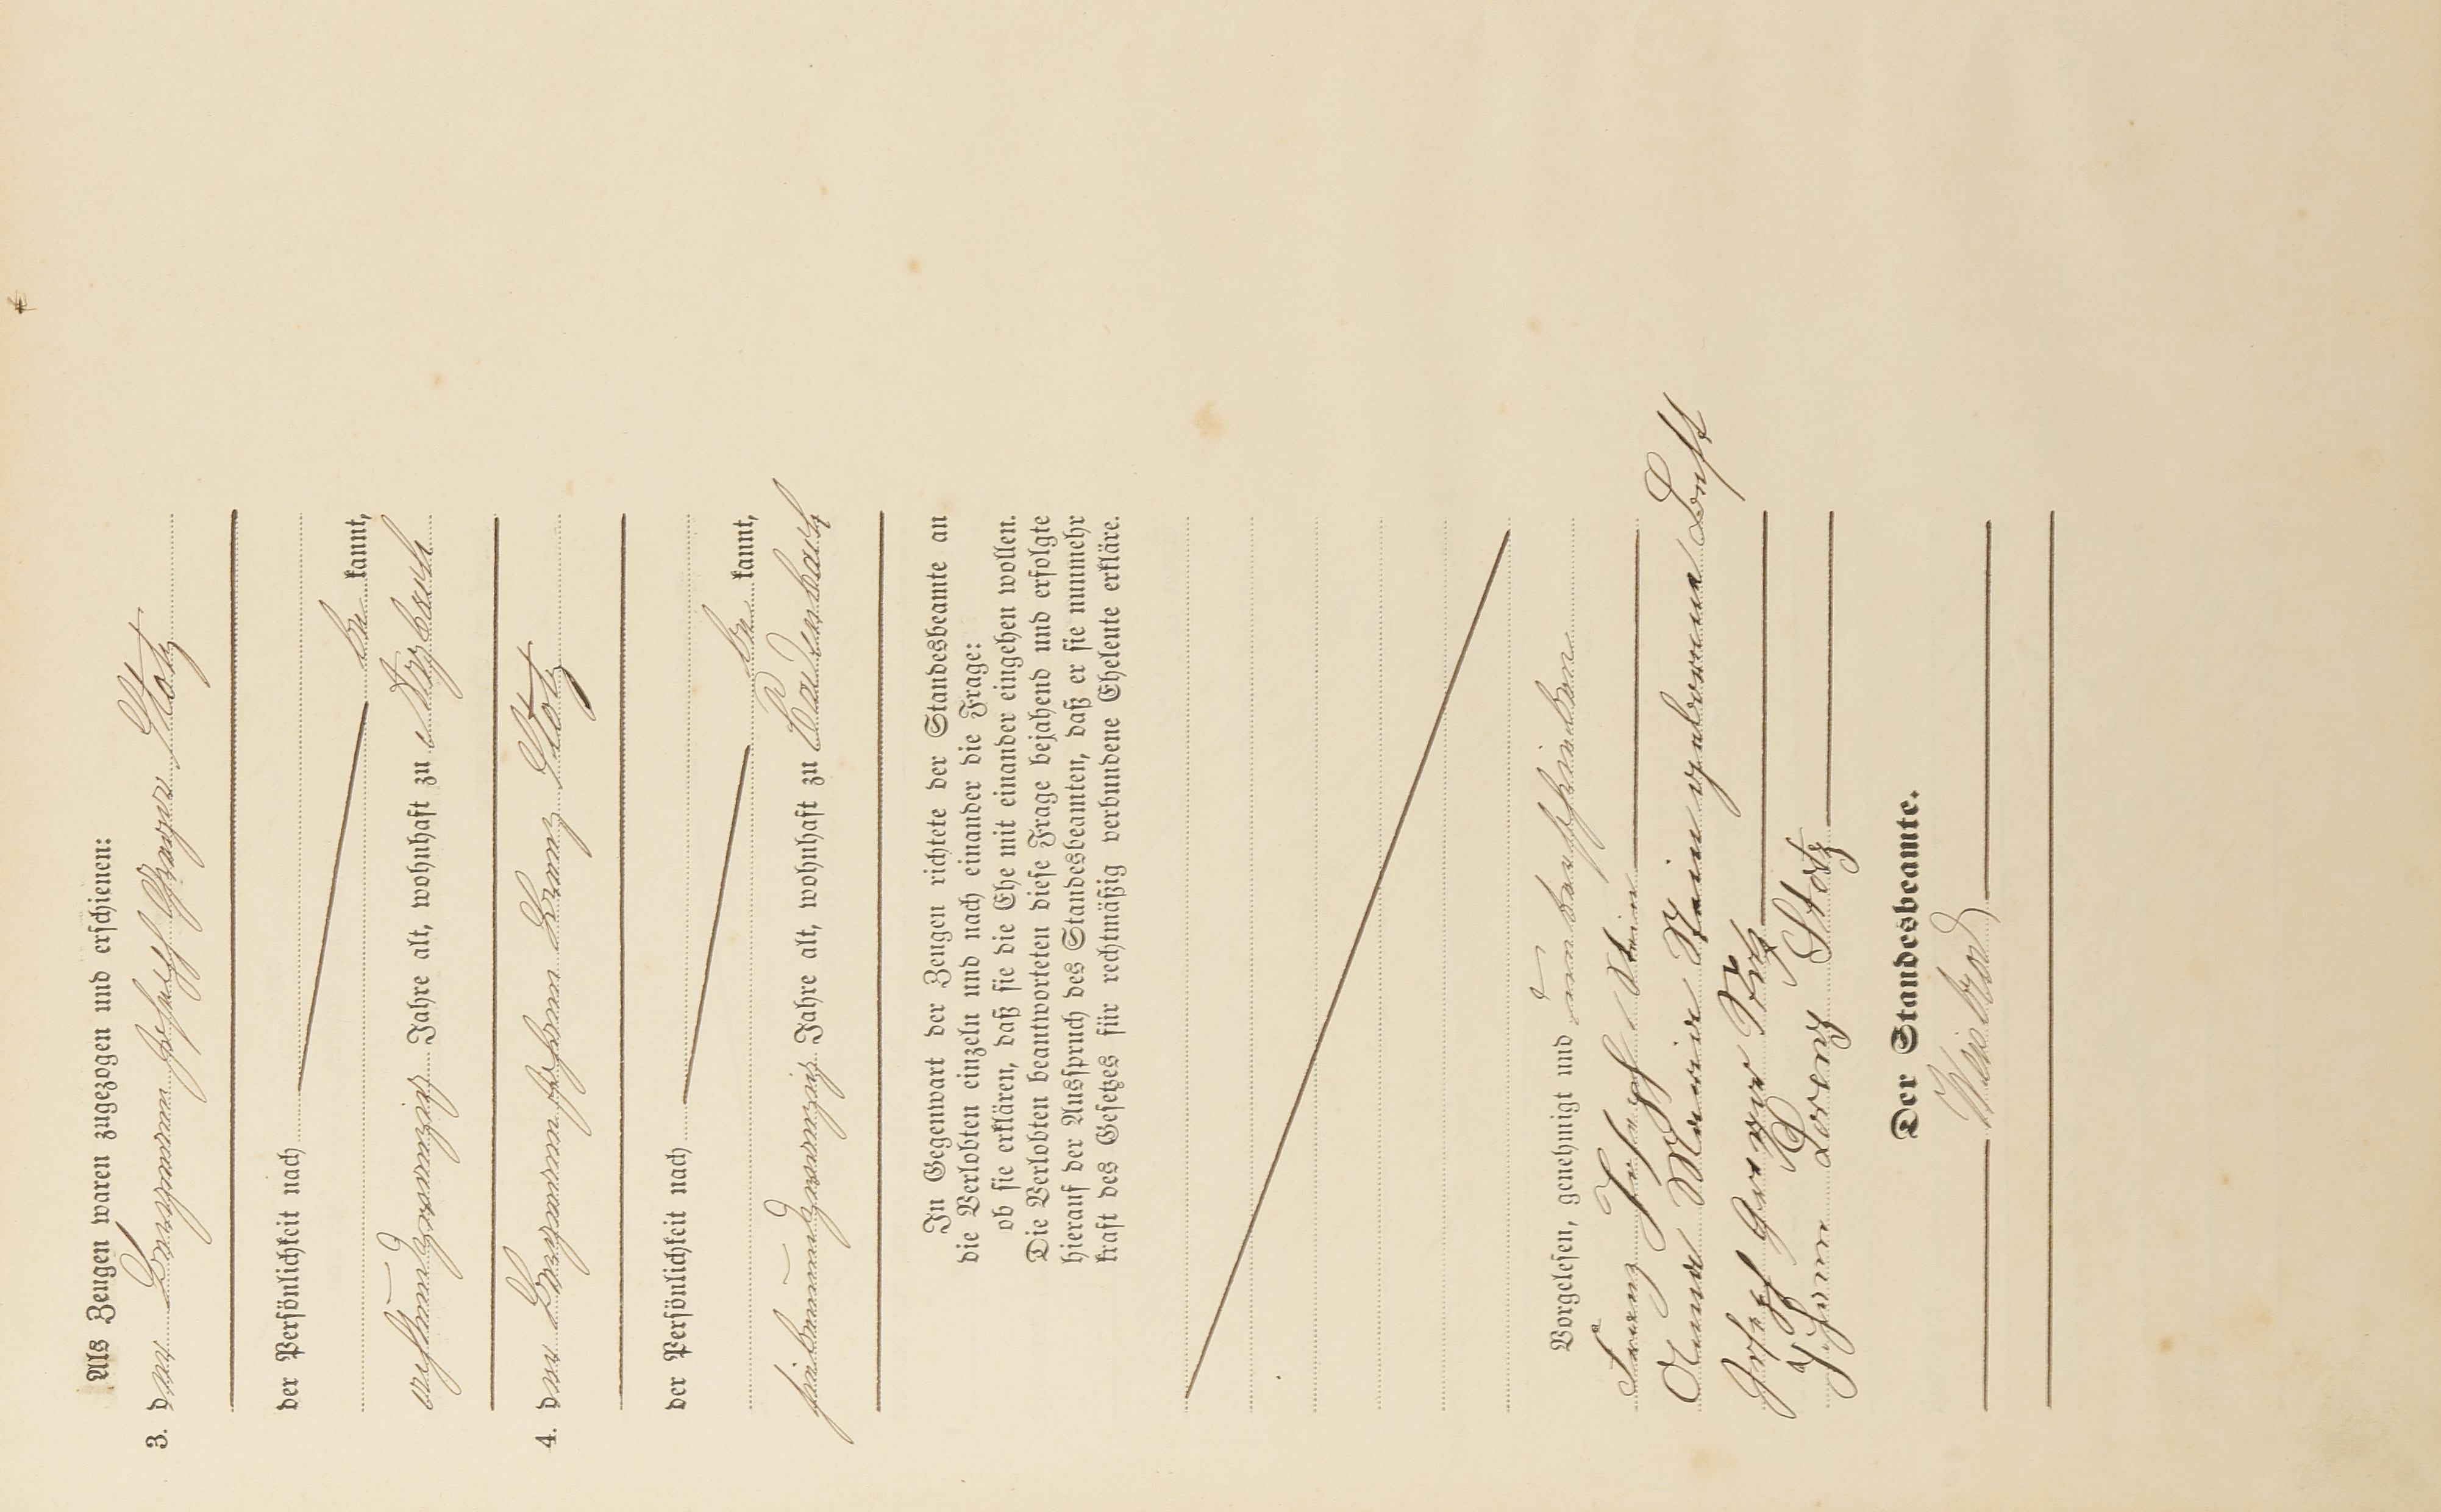 Als Zeugen waren zugezogen und erschienen:
3. der Bergmann Josef Gregor Stotz
der Persönlichkeit nach
be kannt,
achtundzwanzig Jahre alt, wohnhaft zu
4. der Bergmann Johann Lorenz Stotz
der Persönlichkeit nach
be kannt,
siebenundzwanzig Jahre alt, wohnhaft zu
In Gegenwart der Zeugen richtete der Standesbeamte an
die Verlobten einzeln und nach einander die Frage:
ob sie erklären, daß sie die Ehe mit einander eingehen wollen.
Die Verlobten beantworteten diese Frage bejahend und erfolgte
hierauf der Ausspruch des Standesbeamten, daß er sie nunmehr
kraft des Gesetzes für rechtmäßig verbundene Eheleute erkläre.
Vorgelesen, genehmigt und unterschrieben
Franz Josef Stein
Anna Maria Stein geborene Luft
Josef Gregor
Johann Lorenz Stotz
Der Standesbeamte.